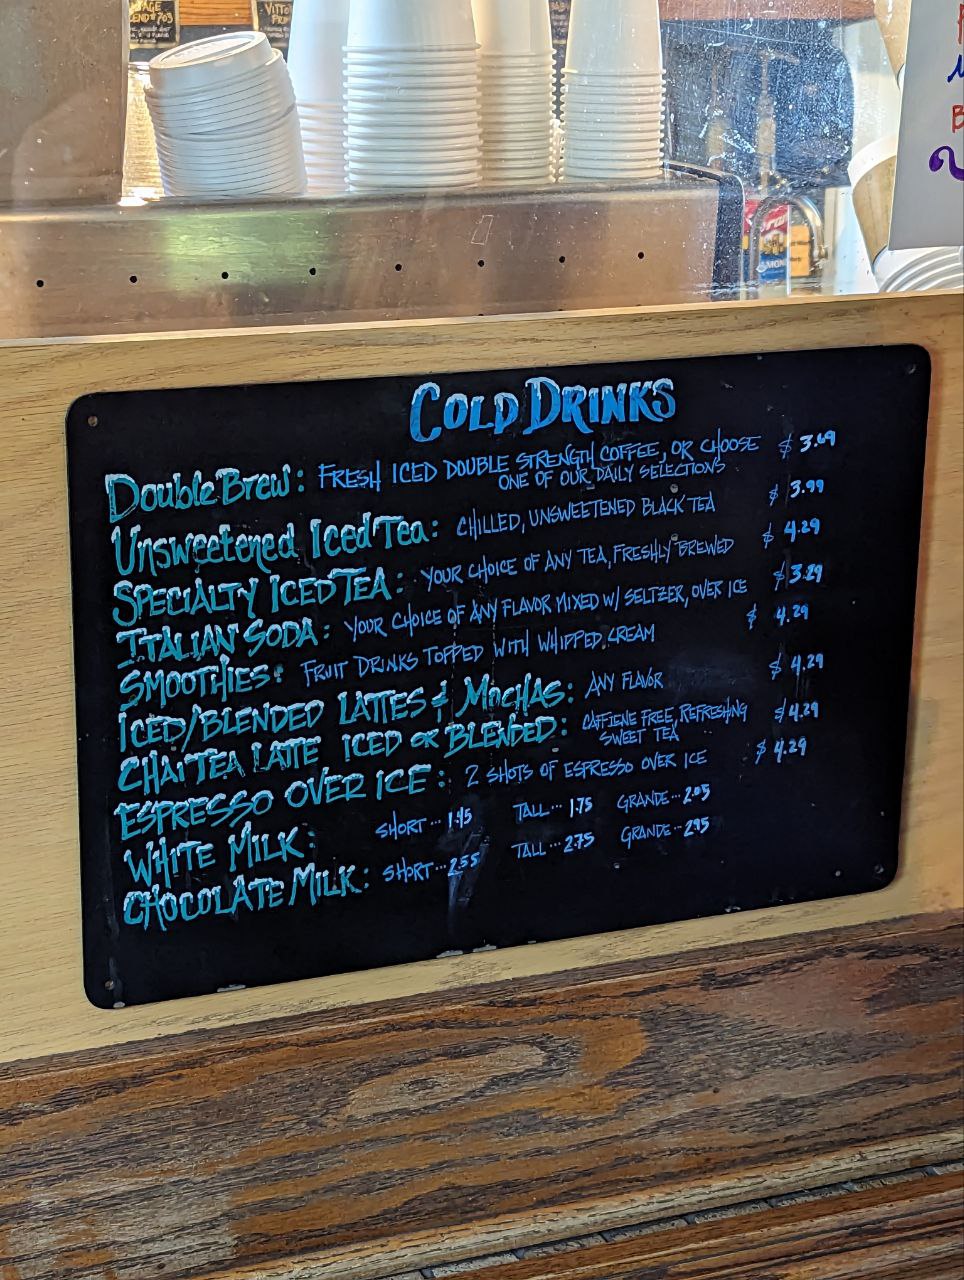 COLD DRINKS
Double Brew: FRESH ICED DOUBLE STRENGTH COFFEE, OR CHOOSE $ 3.69
ONE OF OUR DAILY SELECTIONS
Unsweetened Iced Tea: CHILLED, UNSWEETENED BLACK TEA $ 3.99
SPECIALTY ICED TEA: YOUR CHOICE OF ANY TEA, FRESHLY BREWED $ 4.29
ITALIAN SODA: YOUR CHOICE OF ANY FLAVOR MIXED W/ SELTZER, OVER ICE $ 3.29
SMOOTHIES: FRUIT DRINKS TOPPED WITH WHIPPED CREAM $ 4.29
ICED/BLENDED LATTES & MOCHAS: ANY FLAVOR $ 4.29
CHAI TEA LATTE ICED OR BLENDED: CAFFIENE FREE, REFRESHING $ 4.29
SWEET TEA
ESPRESSO OVER ICE: 2 SHOTS OF ESPRESSO OVER ICE $ 4.29
WHITE MILK: SHORT... 1.45 TALL... 1.75 GRANDE... 2.05
CHOCOLATE MILK: SHORT... 2.55 TALL... 2.75 GRANDE... 2.95